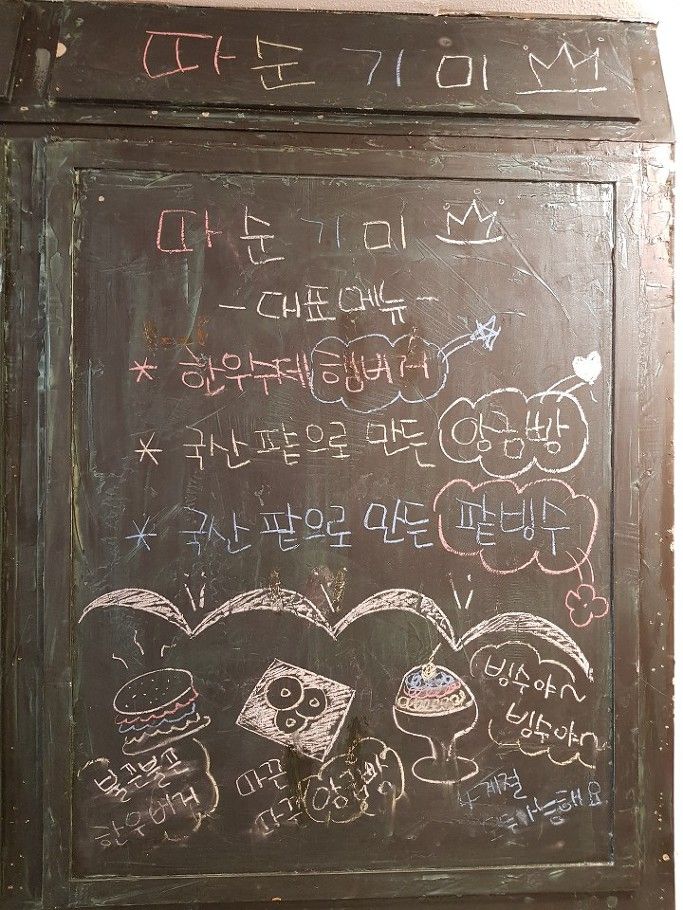 따순기미
따순기미
-대표메뉴-
* 한우수제햄버거
* 국산 팥으로 만든 앙금빵
* 국산 팥으로 만든 팥빙수
빙수야~
빙수야~
불끈불끈
한우버거
따끈
따끈 앙금빵
사계절
가능해요